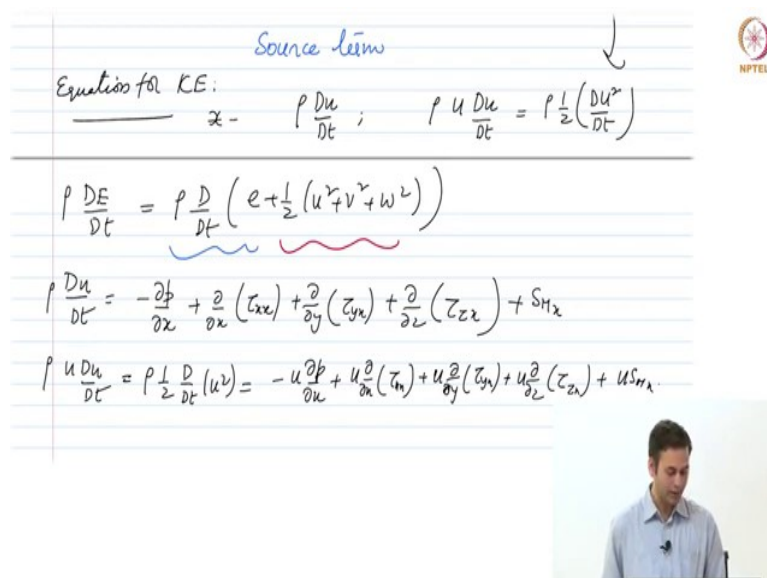 Source term
NPTEL
Equation for KE:
x - ρ Du/Dt ; ρ u Du/Dt = ρ 1/2 (Du²/Dt)
ρ DE/Dt = ρ D/Dt ( e + 1/2 (u²+v²+w²) )
ρ Du/Dt = -∂p/∂x + ∂/∂x (τxx) + ∂/∂y (τyx) + ∂/∂z (τzx) + SMx
ρ u Du/Dt = ρ 1/2 D/Dt (u²) = -u ∂p/∂x + u ∂/∂x (τxx) + u ∂/∂y (τyx) + u ∂/∂z (τzx) + u SMx.